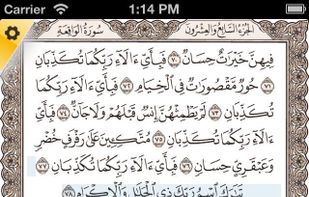 Carrier 1:14 PM
الجزء السابع والعشرون سورة الواقعة
فِيهِنَّ خَيْرَٰتٌ حِسَانٌ ٧٠ فَبِأَيِّ ءَالَآءِ رَبِّكُمَا تُكَذِّبَانِ
٧١ حُورٌ مَّقْصُورَٰتٌ فِي ٱلْخِيَامِ ٧٢ فَبِأَيِّ ءَالَآءِ رَبِّكُمَا
تُكَذِّبَانِ ٧٣ لَمْ يَطْمِثْهُنَّ إِنسٌ قَبْلَهُمْ وَلَا جَآنٌّ ٧٤ فَبِأَيِّ
ءَالَآءِ رَبِّكُمَا تُكَذِّبَانِ ٧٥ مُتَّكِـِٔينَ عَلَىٰ رَفْرَفٍ خُضْرٍ
وَعَبْقَرِيٍّ حِسَانٍ ٧٦ فَبِأَيِّ ءَالَآءِ رَبِّكُمَا تُكَذِّبَانِ ٧٧
تَبَٰرَكَ ٱسْمُ رَبِّكَ ذِي ٱلْجَلَٰلِ وَٱلْإِكْرَامِ ٧٨